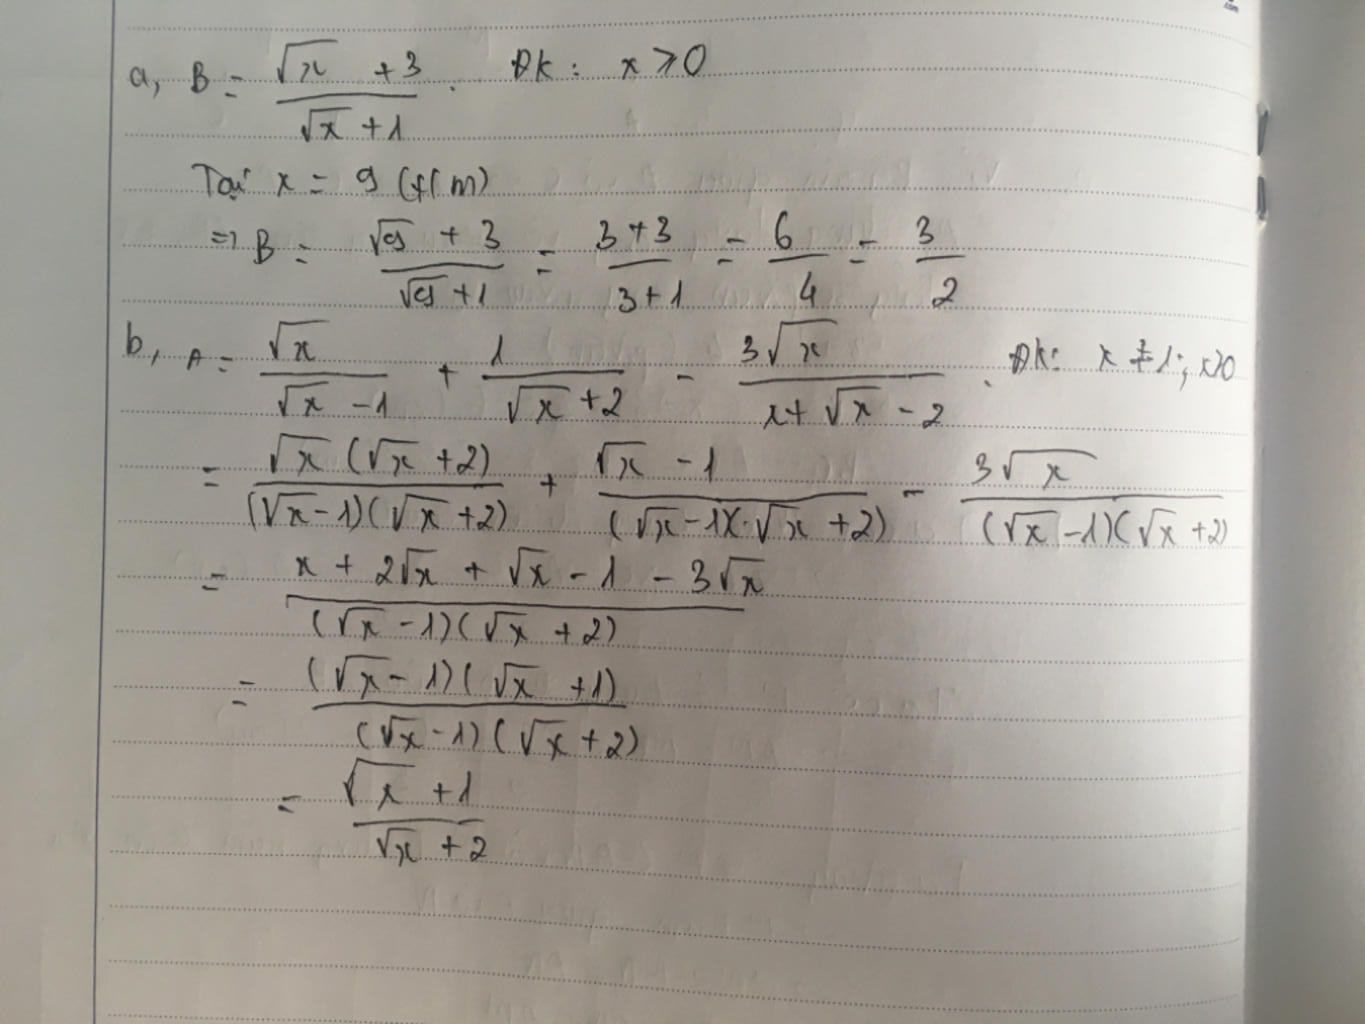 a, B = (√x + 3)/(√x + 1). ĐK: x ⩾ 0
Tại x = 9 (t/m)
=> B = (√9 + 3)/(√9 + 1) = (3 + 3)/(3 + 1) = 6/4 = 3/2
b, A = √x/(√x - 1) + 1/(√x + 2) - 3√x/(x + √x - 2). ĐK: x ≠ 1; x⩾0
= √x(√x + 2)/(√x - 1)(√x + 2) + (√x - 1)/(√x - 1)(√x + 2) - 3√x/(√x - 1)(√x + 2)
= (x + 2√x + √x - 1 - 3√x)/(√x - 1)(√x + 2)
= (√x - 1)(√x + 1)/(√x - 1)(√x + 2)
= (√x + 1)/(√x + 2)